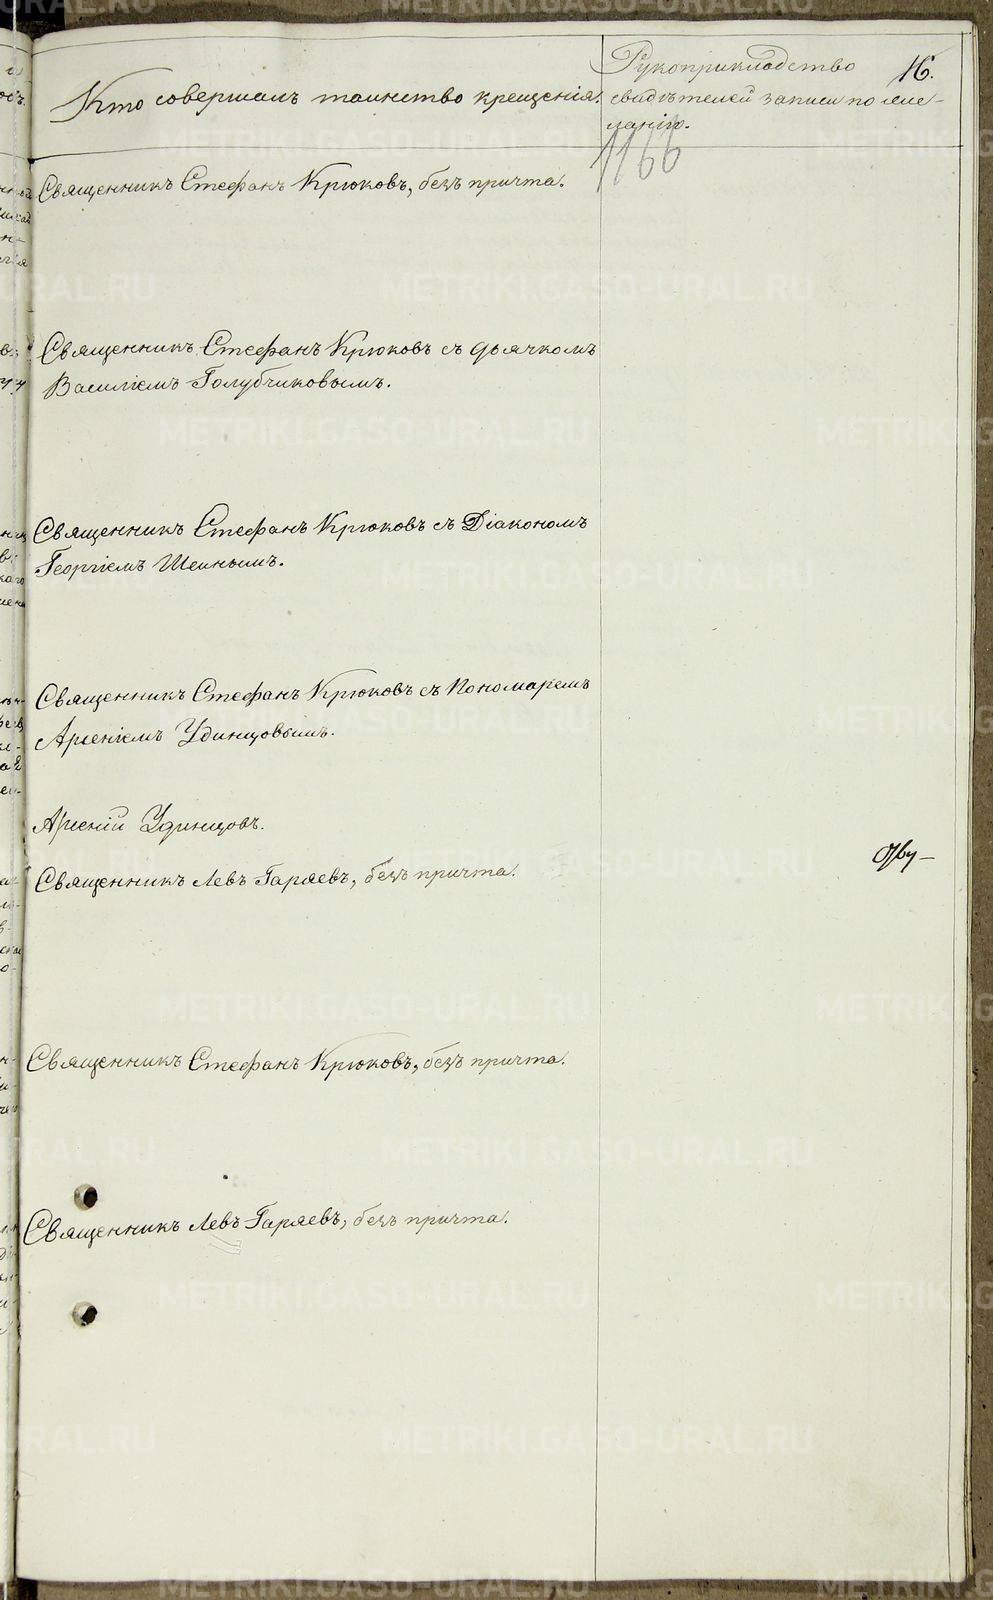 Кто совершалъ таинство крещенія.
Рукоприкладство
свидѣтелей записи по же-
ланію.
16.
1166
Священникъ Стефанъ Крюковъ, безъ причта.
Священникъ Стефанъ Крюковъ съ дьячкомъ
Василіемъ Голубчиковымъ.
Священникъ Стефанъ Крюковъ съ Діакономъ
Георгіемъ
Священникъ Стефанъ Крюковъ съ Пономаремъ
Арсеніемъ Удинцовымъ.
Арсеній Удинцовъ.
Священникъ Левъ Гаряевъ, безъ причта.
Священникъ Стефанъ Крюковъ, безъ причта.
Священникъ Левъ Гаряевъ, безъ причта.
METRIKI.GASO-URAL.RU